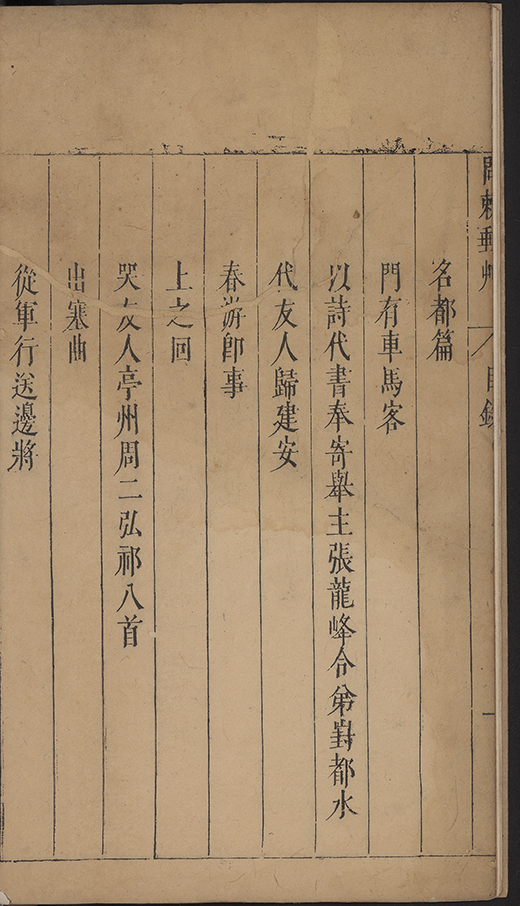 名都篇
門有車馬客
以詩代書奉寄舉主張龍峰令弟對都水
代友人歸建安
春游卽事
上之回
哭友人亭州周二弘祁八首
出塞曲
從軍行送邊將